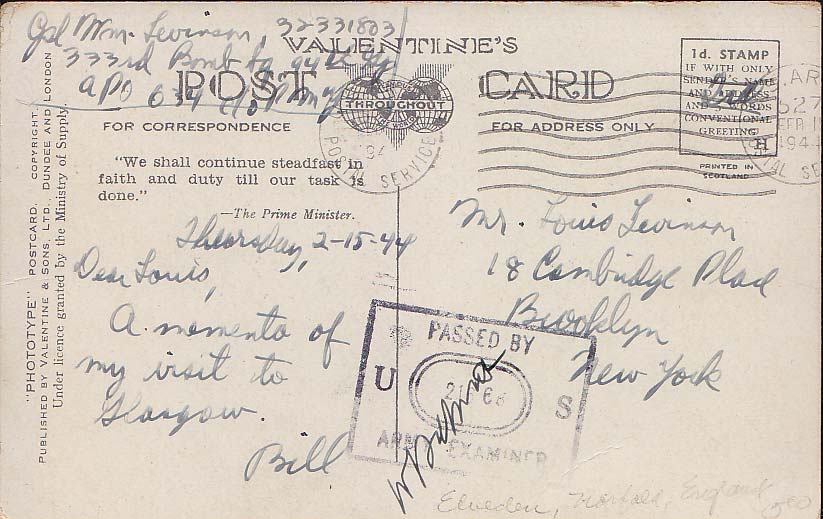 Cpl Wm. Levinson, 32331803
333rd Bomb Gp 94th
APO 634 c/o PM NY
VALENTINE'S
POST CARD
THROUGHOUT
FOR CORRESPONDENCE
FOR ADDRESS ONLY
1d. STAMP
IF WITH ONLY
SENDER'S NAME
AND ADDRESS
AND WORDS
CONVENTIONAL
GREETING
H
PRINTED IN
SCOTLAND
POSTAL SERVICE
1944
"We shall continue steadfast in
faith and duty till our task is
done."
—The Prime Minister.
Theorsday, 2-15-44
Dear Louis,
A momento of
my visit to
Glasgow.
Bill
Mr. Louis Levinson
18 Cambridge Place
Brooklyn
New York
PASSED BY
U S
ARMY EXAMINER
Elveden, Norfolk, England
"PHOTOTYPE" POSTCARD. COPYRIGHT.
PUBLISHED BY VALENTINE & SONS, LTD., DUNDEE AND LONDON
Under licence granted by the Ministry of Supply.